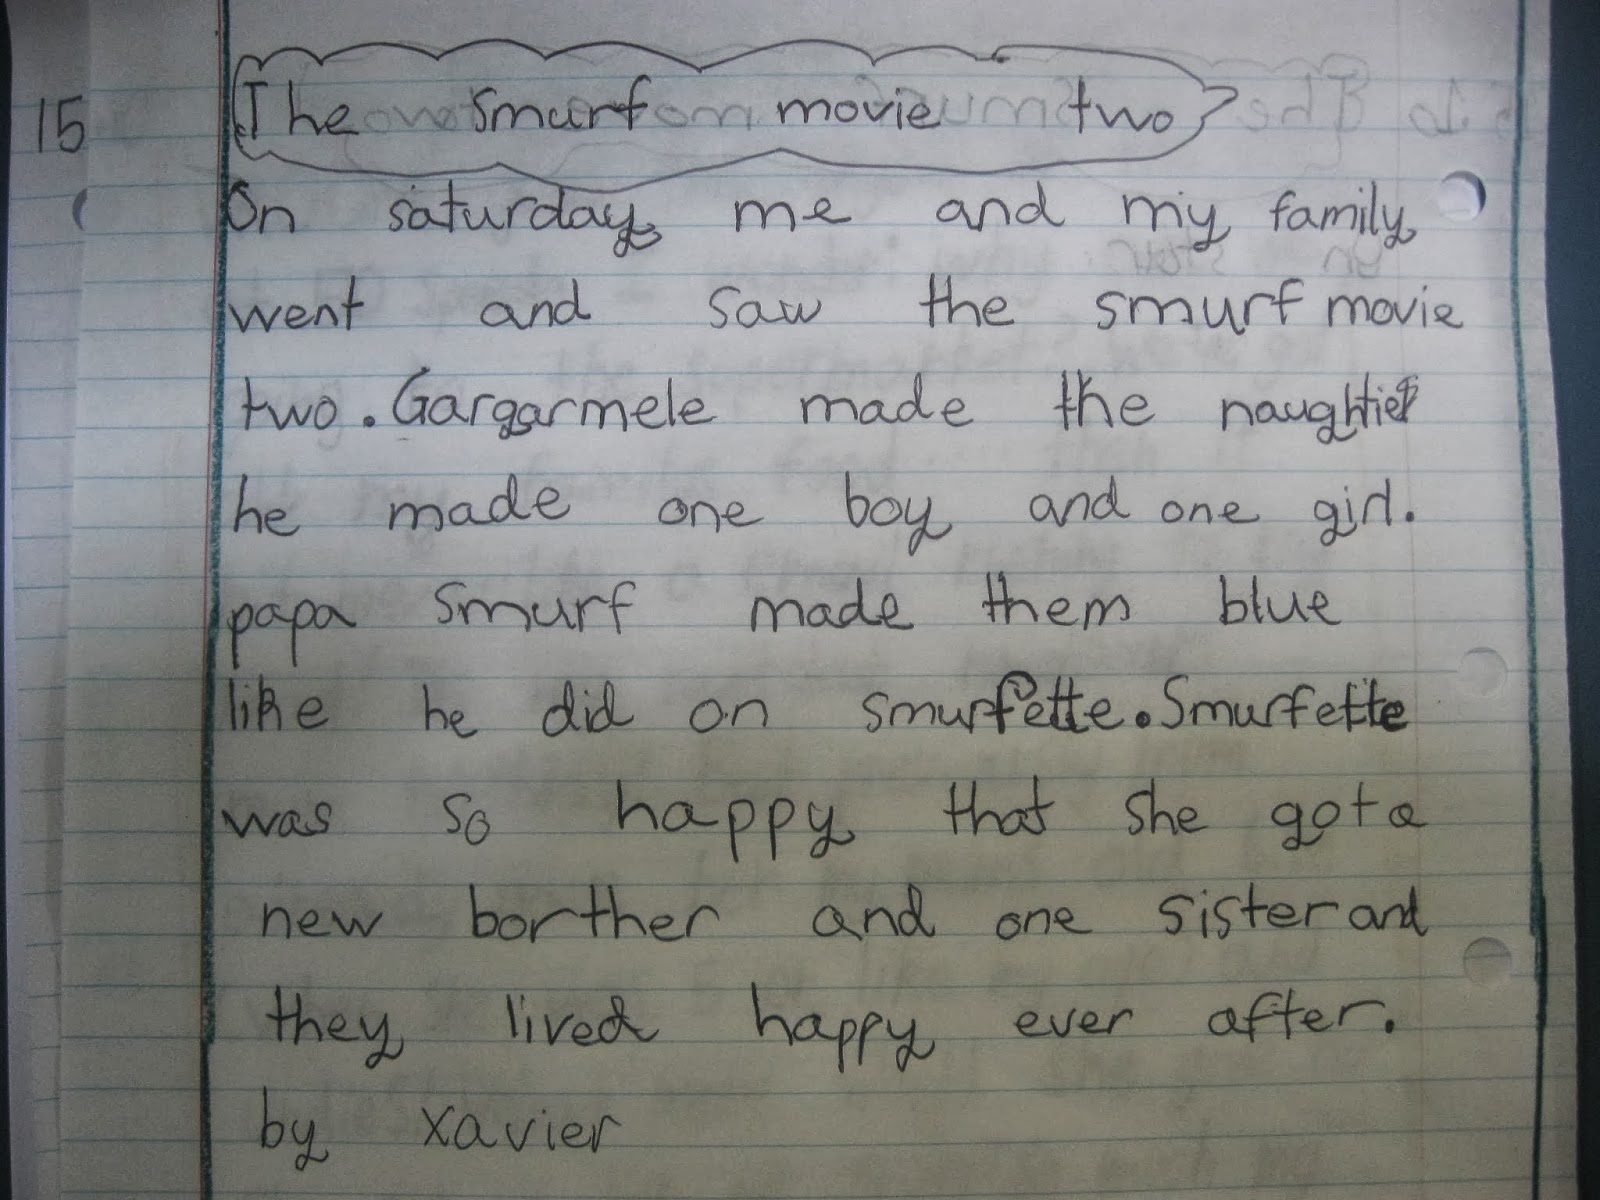 15 The smurf movie two
On saturday, me and my family
went and saw the smurf movie
two. Gargarmele made the naughties
he made one boy and one girl.
papa smurf made them blue
like he did on smurfette. Smurfette
was so happy that she got a
new borther and one sister and
they lived happy ever after.
by xavier